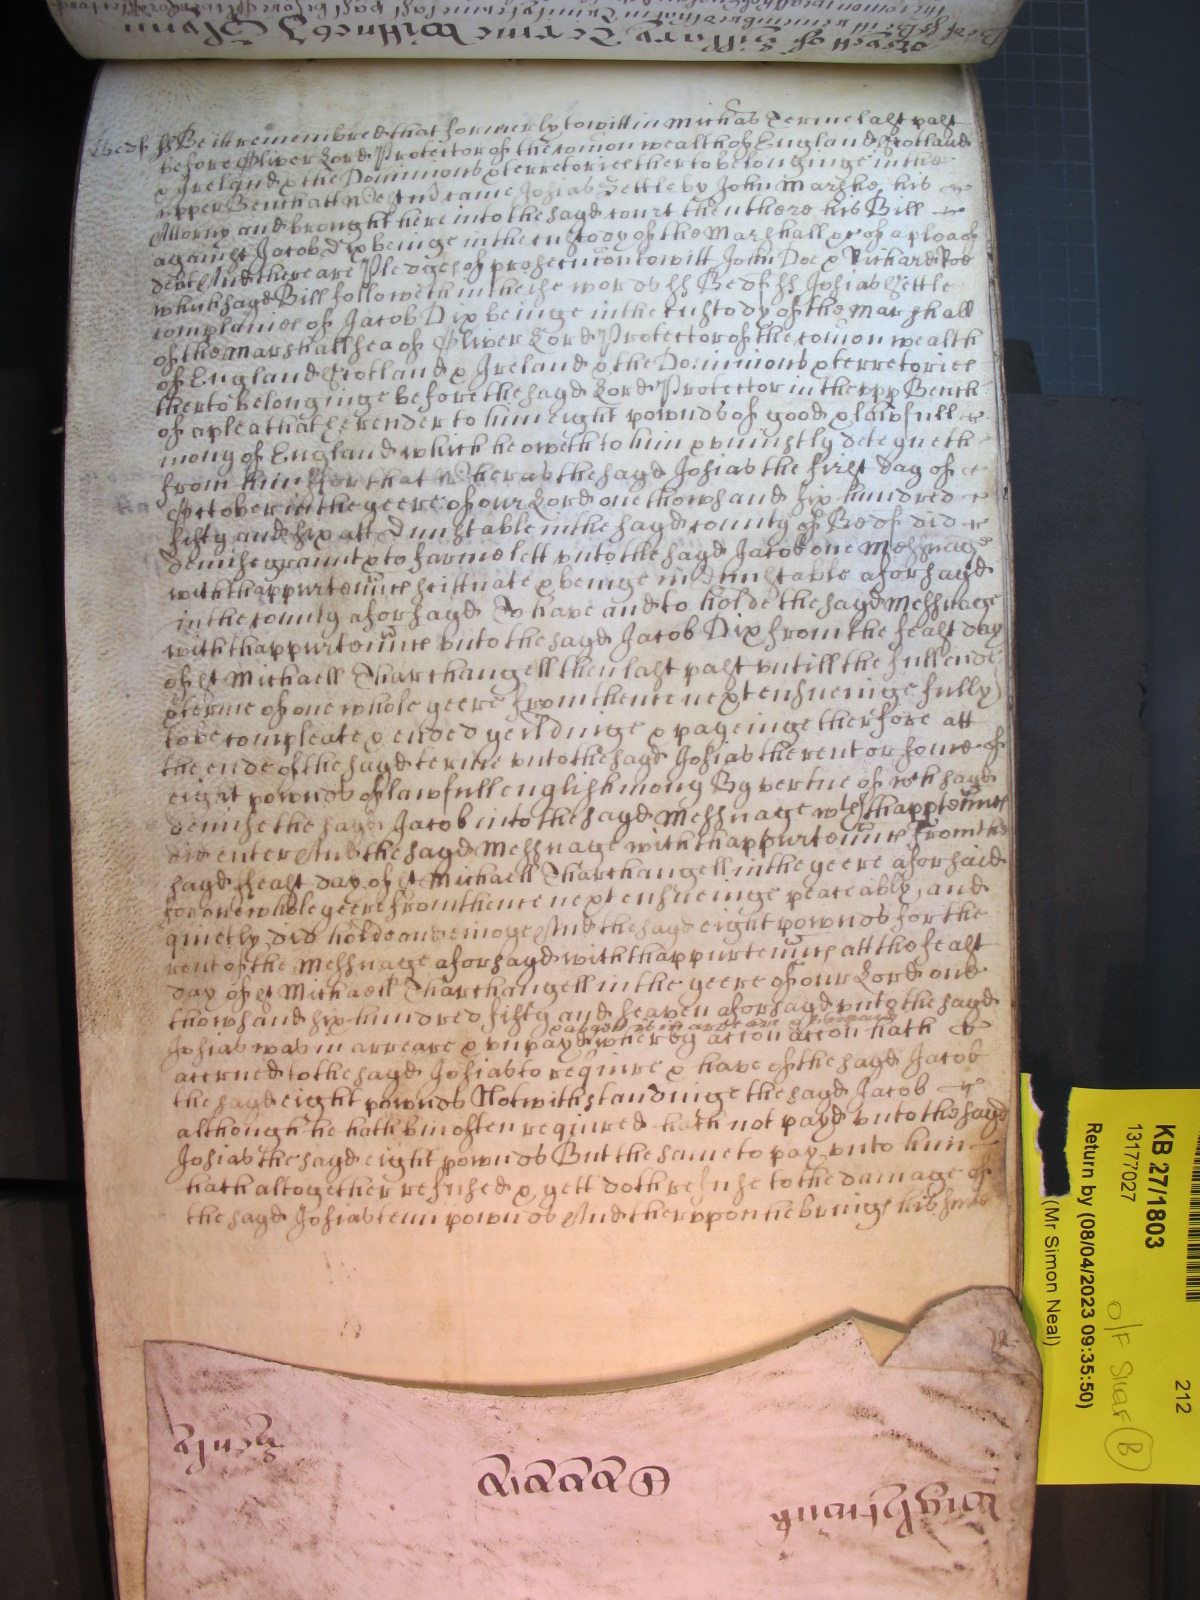 Bedf ss Be itt remembred that formerly to witt in Michās Terme last past
before Oliver Lord Protector of the comon wealth of England Scotland
& Ireland & the Dominions & terretories therto belonginge in the
upper Bench att Westm came Josias Settle by John Marshe his
Attorny and brought here into the sayd court then there his Bill
against Jacob Dix beinge in the custody of the Marshall &c of a plea of
debt And there are Pledges of prosecucon to witt John Doe & Richard Roe
which sayd Bill followeth in theise words ss Bedf ss Josias Settle
complaines of Jacob Dix beinge in the custody of the Marshall
of the Marshallsea of Oliver Lord Protector of the comon wealth
of England Scotland & Ireland & the Dominions & terretories
therto belonginge before the sayd Lord Protector in the upp Bench
of a plea that he render to him eight pownds of good & lawfull
mony of England which he oweth to him & uniustly deteyneth
from him For that Wheras the sayd Josias the first day of
October in the yeere of our Lord one thowsand six hundred
fifty and six att Dunstable in the sayd county of Bedf did
demise graunt & to farme lett unto the sayd Jacob one Messuage
with thappurtennces scittuate & beinge in Dunstable aforsayd
in the county aforsayd To have and to holde the sayd Messuage
with thappurtennces unto the sayd Jacob Dix from the feast day
of St Michaell Tharchangell then last past untill the full ende
& terme of one whole yeere from thence next ensueinge fully
to be compleate & ended yeildinge & payeinge therfore att
the ende of the sayd terme unto the sayd Josias the rent or some of
eight pownds of lawfull english mony By vertue of wch sayd
demise the sayd Jacob into the sayd Messuage wth thappurtennces
did enter And the sayd Messuage with thappurtennces from the
sayd feast day of St Michaell Tharchangell in the yeere aforsaid
for one whole yeere from thence next ensueinge peaceably and
quietly did holde and enioye And the sayd eight pownds for the
rent of the Messuage aforsayd with thappurtennces att the feast
day of St Michaell Tharchangell in the yeere of our Lord one
thowsand six hundred fifty and seaven aforsayd unto the sayd
Josias was in arreare & unpayd wherby action accon hath
accrued to the sayd Josias to require & have of the sayd Jacob
the sayd eight pownds Notwithstandinge the sayd Jacob
although he hath bin often required hath not payd unto the sayd
Josias the sayd eight pownds But the same to pay unto him
hath altogether refused & yett doth refuse to the damage of
the sayd Josias tenn pownds And therupon he brings his suite
KB 27/1803
13177027
Return by (08/04/2023 09:35:50)
(Mr Simon Neal)
212
O/F Shar B